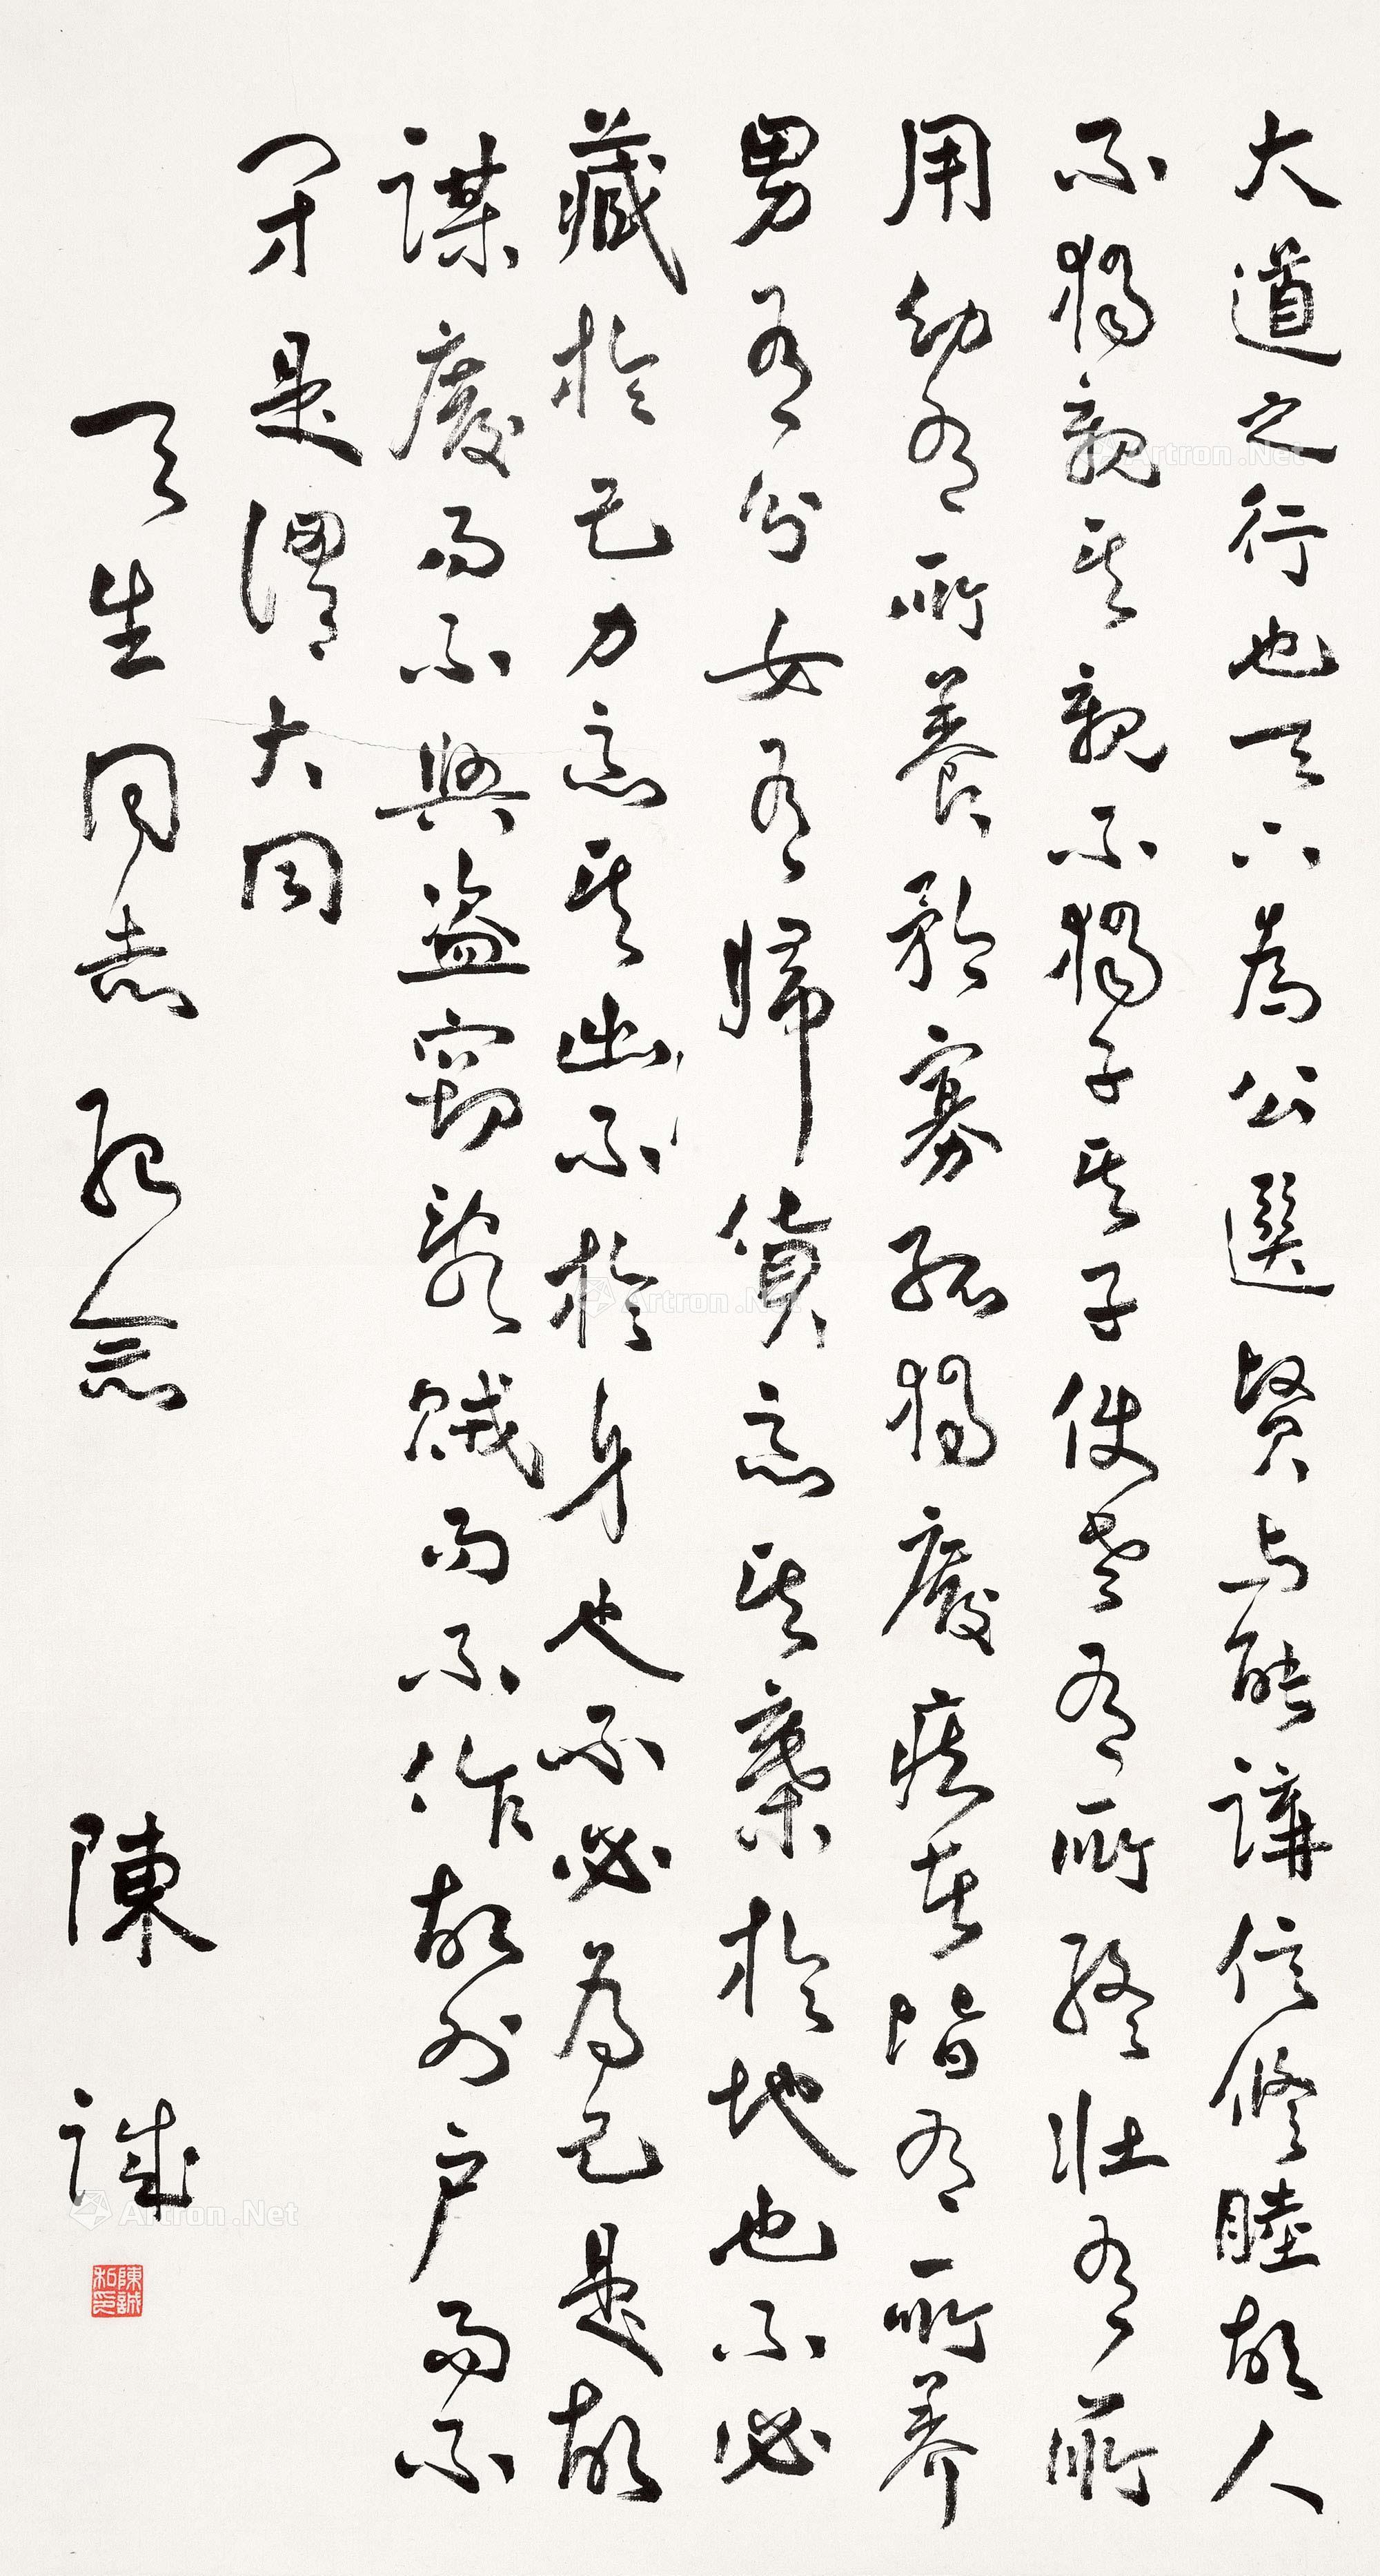 大道之行也天下為公選賢与能講信修睦故人
不獨親其親不獨子其子使老有所終壯有所
用幼有所養矜寡孤獨廢疾者皆有所養
男有分女有歸貨惡其棄於地也不必
藏於己力惡其出不於身也不必為己是故
謀廢而不興盜竊亂賊而不作故外户而不
閉是謂大同
天生同志 紀念 陳誠
陳誠私印
Artron.Net
Artron.Net
Artron.Net